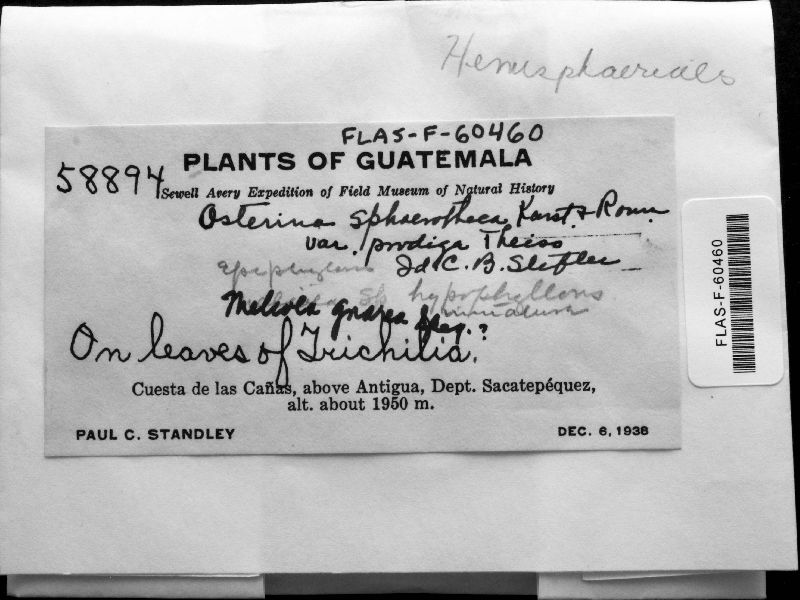 Hemisphaeriales
FLAS-F-60460
58894
PLANTS OF GUATEMALA
Sewell Avery Expedition of Field Museum of Natural History
Asterina sphaerotheca Karst. & Roum
var. prodiga Theiss
Id C. B. Sleffler
epiphyllous
sp. hypophyllous
Meliola gnarea Speg.?
On leaves of Trichilia.
Cuesta de las Cañas, above Antigua, Dept. Sacatepéquez,
alt. about 1950 m.
PAUL C. STANDLEY
DEC. 6, 1938
FLAS-F-60460